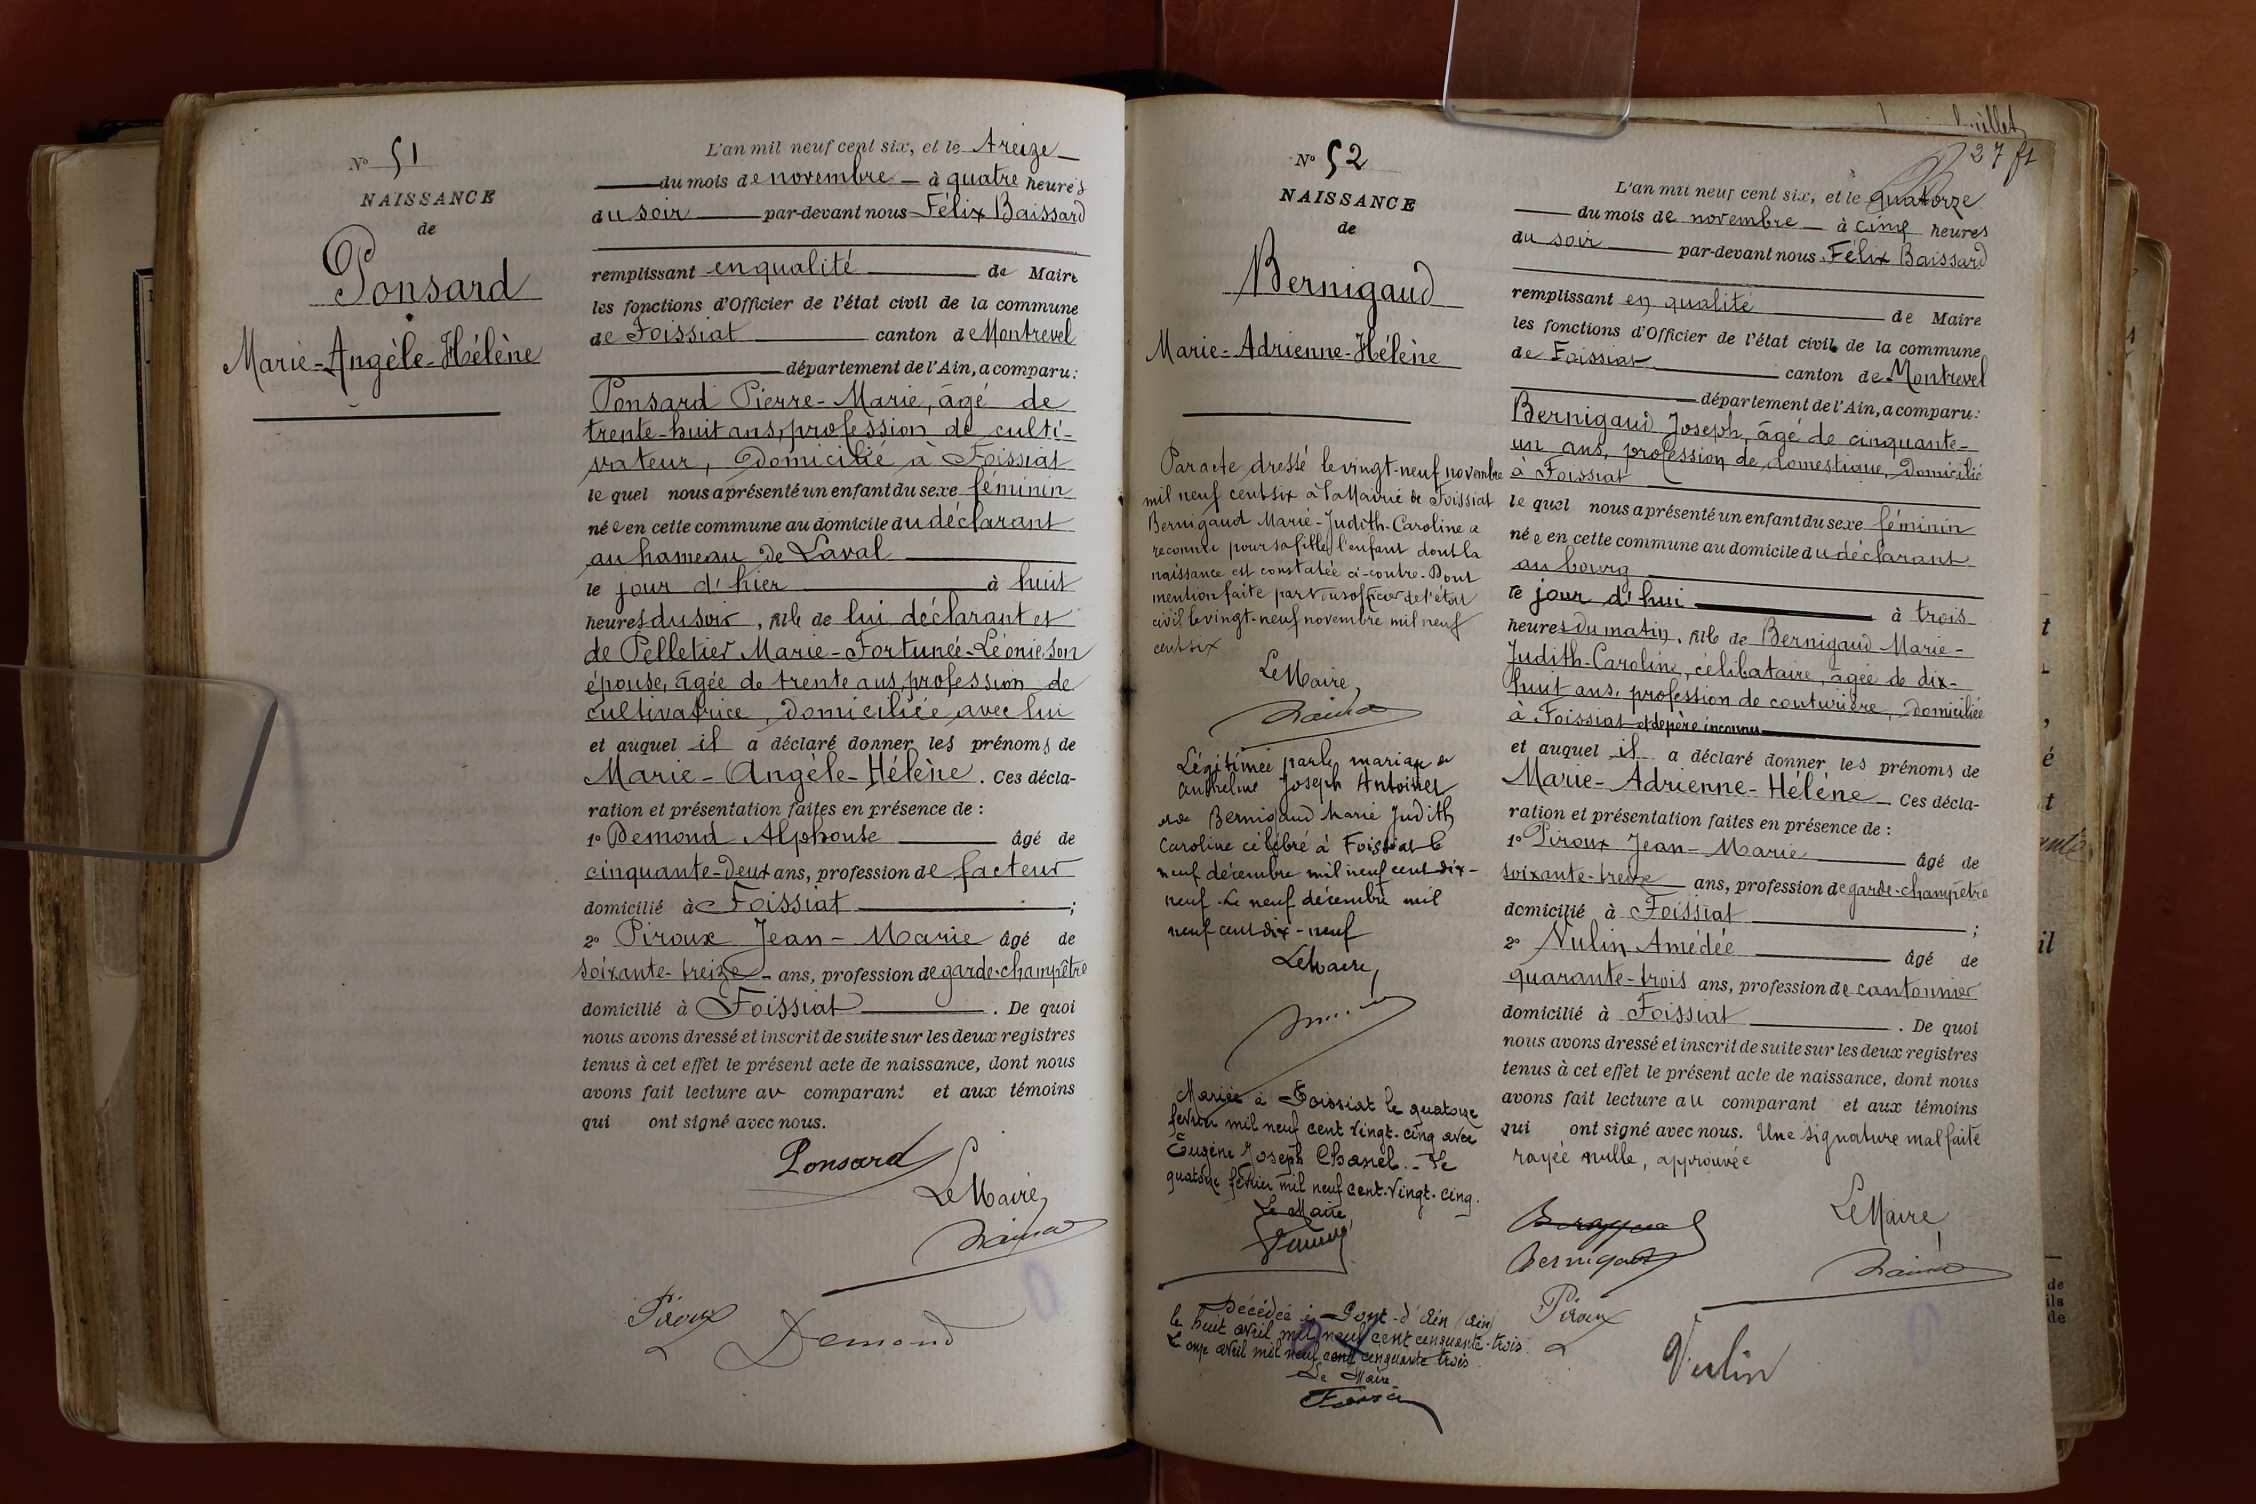 N° 51
NAISSANCE
de
Ponsard
Marie-Angèle-Hélène
L'an mil neuf cent six, et le treize
du mois de novembre à quatre heures
du soir par-devant nous Félix Baissard
remplissant en qualité de Maire
les fonctions d'Officier de l'état civil de la commune
de Foissiat canton de Montrevel
département de l'Ain, a comparu:
Ponsard Pierre-Marie, âgé de
trente-huit ans, profession de culti-
vateur, domicilié à Foissiat
le quel nous a présenté un enfant du sexe féminin
née en cette commune au domicile du déclarant
au hameau de Laval
le jour d'hier à huit
heures du soir, fille de lui déclarant et
de Pelletier Marie-Fortunée-Léonie, son
épouse, âgée de trente ans, profession de
cultivatrice, domiciliée avec lui
et auquel il a déclaré donner les prénoms de
Marie-Angèle-Hélène. Ces décla-
ration et présentation faites en présence de :
1° Demond Alphonse âgé de
cinquante-deux ans, profession de facteur
domicilié à Foissiat ;
2° Piroux Jean-Marie âgé de
soixante-treize ans, profession de garde-champêtre
domicilié à Foissiat . De quoi
nous avons dressé et inscrit de suite sur les deux registres
tenus à cet effet le présent acte de naissance, dont nous
avons fait lecture au comparant et aux témoins
qui ont signé avec nous.
Ponsard
Le Maire,
Piroux
Demond
27 ft
N° 52
NAISSANCE
de
Bernigaud
Marie-Adrienne-Hélène
Par acte dressé le vingt-neuf novembre
mil neuf cent six à la Mairie de Foissiat
Bernigaud Marie-Judith-Caroline a
reconnu pour sa fille l'enfant dont la
naissance est constatée ci-contre. Dont
mention faite par nous officier de l'état
civil le vingt-neuf novembre mil neuf
cent six
Le Maire,
Légitimée par le mariage de
Anthelme Joseph Antoine
et de Bernigaud Marie Judith
Caroline célébré à Foissiat le
neuf décembre mil neuf cent dix-
neuf. Le neuf décembre mil
neuf cent dix-neuf
Le Maire,
Mariée à Foissiat le quatorze
février mil neuf cent vingt-cinq avec
Eugène Joseph Chanel. - Le
quatorze février mil neuf cent-vingt-cinq.
Le Maire
Décédée à Pont-d'Ain (Ain)
le huit avril mil neuf cent cinquante-trois.
Le onze avril mil neuf cent cinquante trois.
Le Maire
L'an mil neuf cent six, et le quatorze
du mois de novembre à cinq heures
du soir par-devant nous Félix Baissard
remplissant en qualité de Maire
les fonctions d'Officier de l'état civil de la commune
de Foissiat canton de Montrevel
département de l'Ain, a comparu:
Bernigaud Joseph, âgé de cinquante-
un ans, profession de domestique, domicilié
à Foissiat
le quel nous a présenté un enfant du sexe féminin
née en cette commune au domicile du déclarant
au bourg
le jour d'hui à trois
heures du matin, fille de Bernigaud Marie-
Judith-Caroline, célibataire, âgée de dix-
huit ans, profession de couturière, domiciliée
à Foissiat et de père inconnu
et auquel il a déclaré donner les prénoms de
Marie-Adrienne-Hélène. Ces décla-
ration et présentation faites en présence de :
1° Piroux Jean-Marie âgé de
soixante-treize ans, profession de garde-champêtre
domicilié à Foissiat ;
2° Vulin Amédée âgé de
quarante-trois ans, profession de cantonnier
domicilié à Foissiat . De quoi
nous avons dressé et inscrit de suite sur les deux registres
tenus à cet effet le présent acte de naissance, dont nous
avons fait lecture au comparant et aux témoins
qui ont signé avec nous. Une signature mal faite
rayée nulle, approuvée
Bernigaud
Le Maire,
Piroux
Vulin